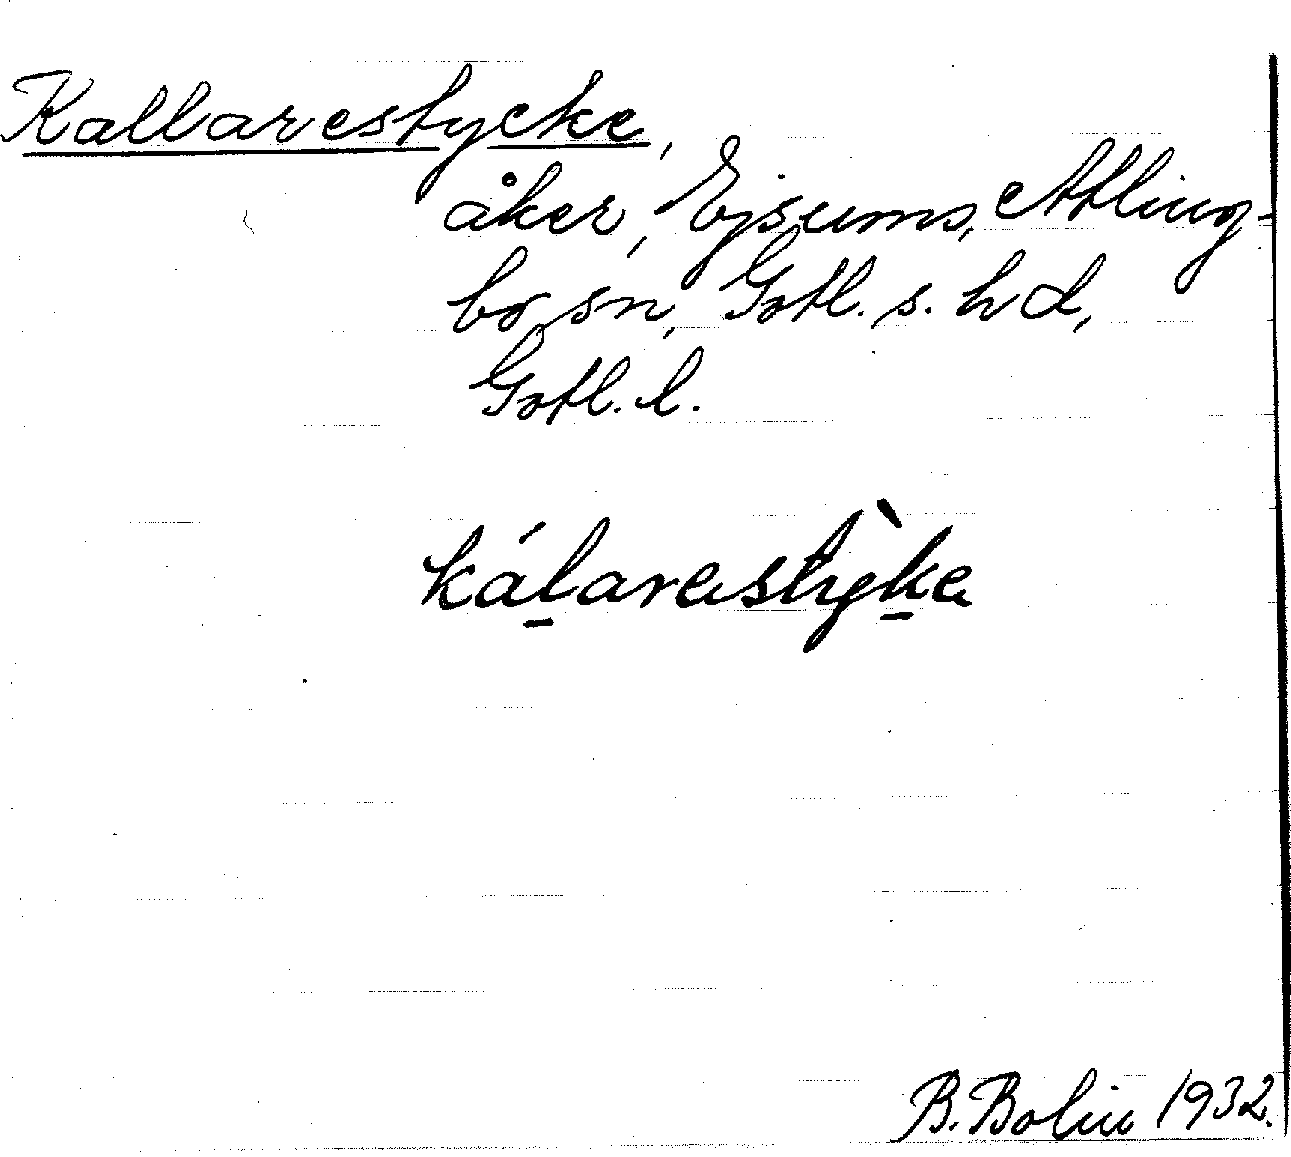 Kallarestycke,
åker, Ejsums, Atling-
bo sn, Gotl. s. hd,
Gotl. l.
kálarestỳka
B. Bolin 1932.